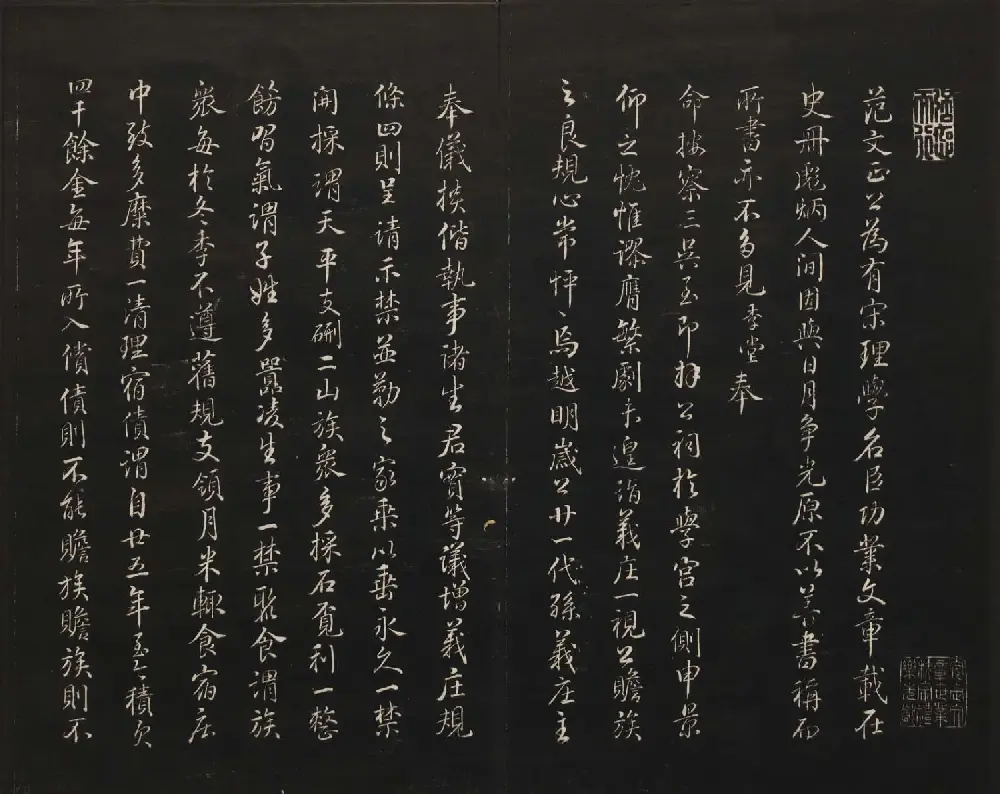 范文正公為有宋理學名臣功業文章載在
史冊彪炳人间固與日月争光原不以善書稱而
所書亦不多見季堂奉
命按察三吴至即拜公祠於學宫之側申景
仰之忱惟謬膺繁劇未遑詣義庄一視公贍族
之良規心常怦〻焉越明歲公廿一代孫義庄主
奉儀揆偕執事諸生君實等議增義庄規
條四則呈请示禁並勒之家乘以垂永久一禁
開採謂天平支硎二山族衆多採石覔利一整
飭習氣谓子姓多嚣凌生事一禁聚食谓族
衆每於冬季不遵舊規支領月米輒食宿庄
中致多糜費一清理宿債謂自廿五年至積欠
四千餘金每年所入償債則不能贍族贍族則不